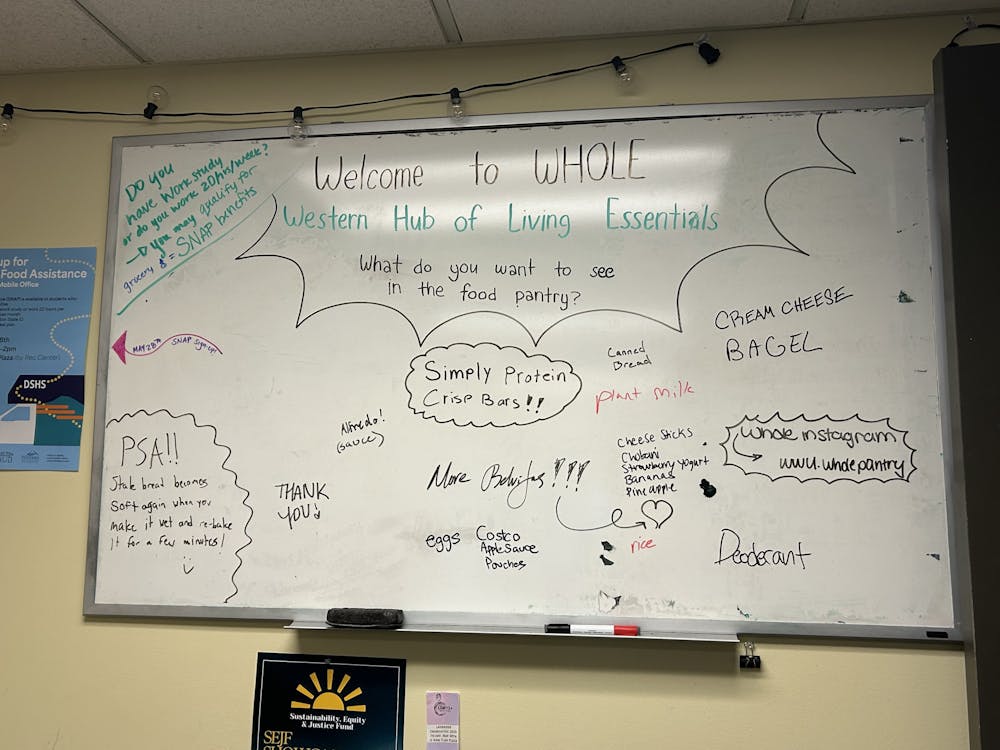 Welcome to WHOLE
Western Hub of Living Essentials
What do you want to see
in the food pantry?
Do you
have work study
or do you work 20hr/week?
you may qualify for
grocery $ = SNAP benefits
MAY 28TH SNAP Sign up!
CREAM CHEESE
BAGEL
Canned
Bread
plant milk
Simply Protein
Crisp Bars!!
Alfredo!
(sauce)
PSA!!
Stale bread becomes
soft again when you
make it wet and re-bake
it for a few minutes!
THANK
YOU
More Belvitas!!!
Cheese Sticks
Chobani
Strawberry yogurt
Bananas
Pineapple
whole instagram
wwu.wholepantry
eggs
Costco
Apple Sauce
Pouches
rice
Deoderant
up for
Food Assistance
Mobile Office
DSHS
Sustainability, Equity
& Justice Fund
SEJF